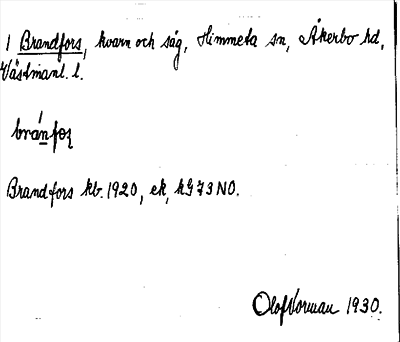 1 Brandfors, kvarn och såg, Himmeta sn, Åkerbo hd,
Västmanl. l.
Brandfors kb. 1920, ek, kG 73 NO.
Olof Vorman 1930.